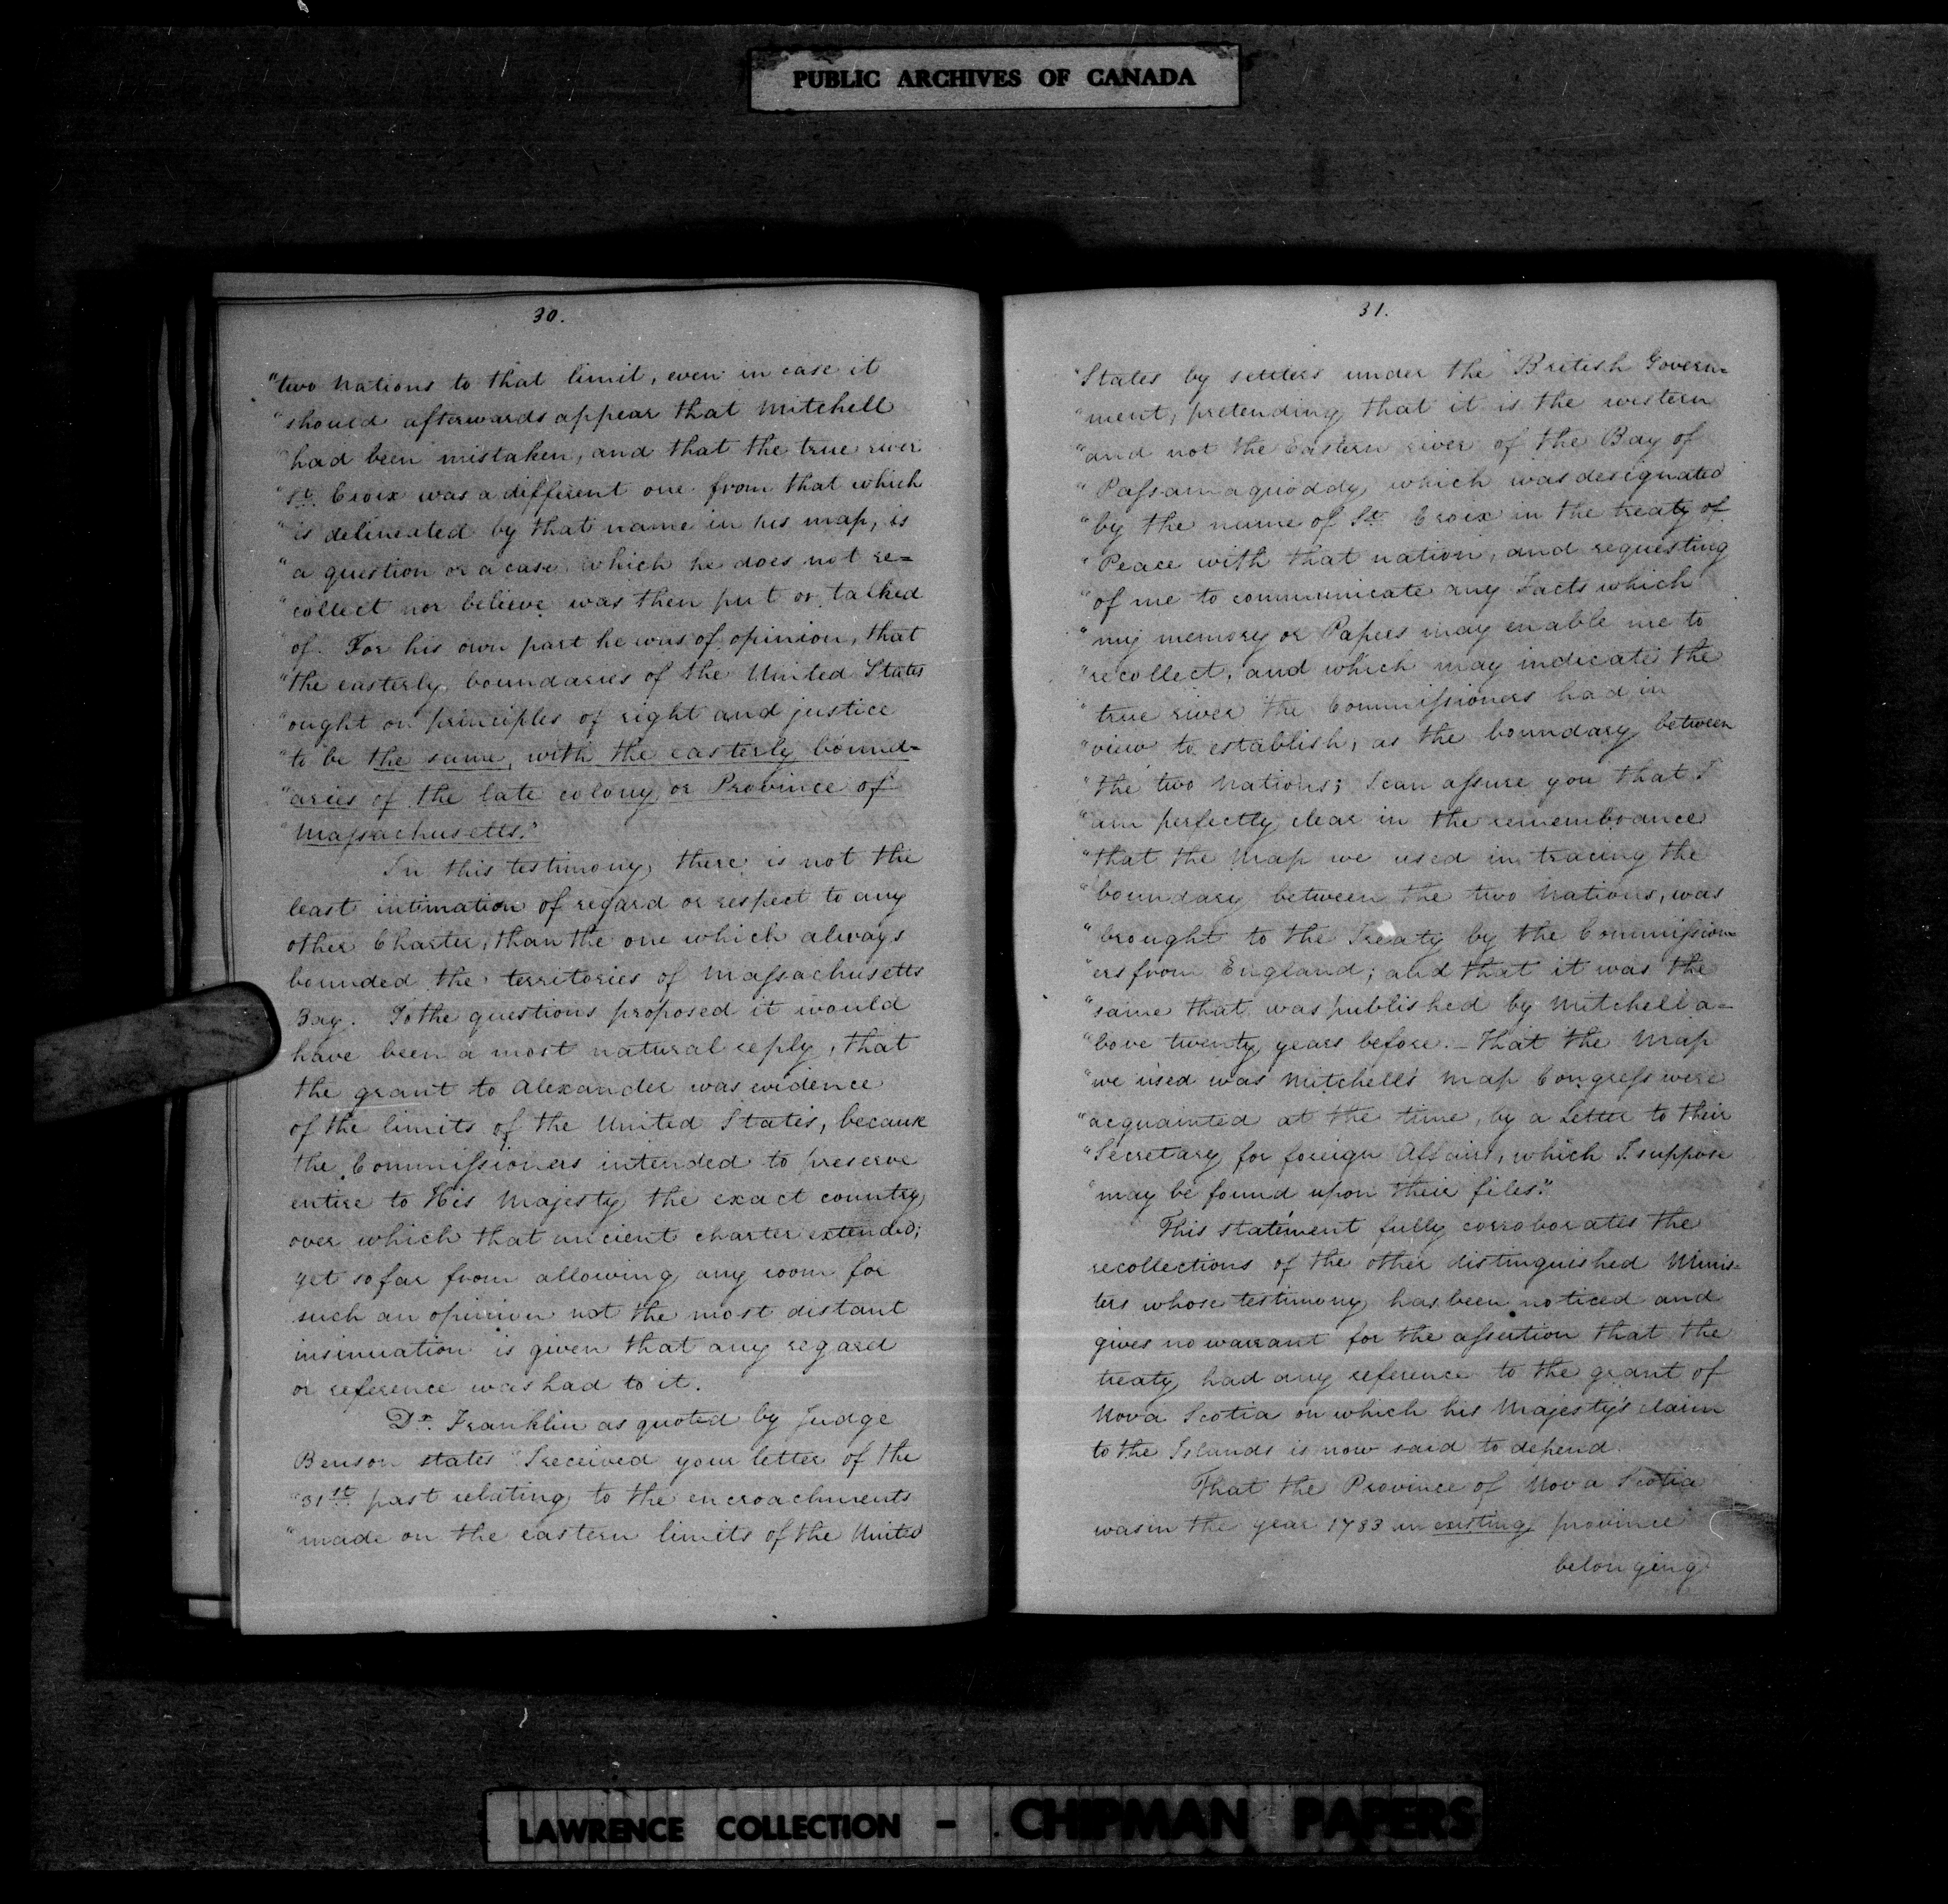 PUBLIC ARCHIVES OF CANADA
30.
"two Nations to that limit, even in case it
"should afterwards appear that Mitchell
"had been mistaken, and that the true river
"St. Croix was a different one from that which
"is delineated by that name in his map, is
"a question or a case which he does not re=
"collect nor believe was then put or talked
"of. For his own part he was of opinion, that
"the easterly boundaries of the United States
"ought on principles of right and justice
"to be the same, with the easterly bound=
"aries of the late colony or Province of
"Massachusetts."
In this testimony there is not the
least intimation of regard or respect to any
other Charter, than the one which always
bounded the territories of Massachusetts
Bay. To the questions proposed it would
have been a most natural reply, that
the grant to Alexander was evidence
of the limits of the United States, because
the Commissioners intended to preserve
entire to His Majesty the exact country
over which that ancient charter extended;
yet so far from allowing any room for
such an opinion not the most distant
insinuation is given that any regard
or reference was had to it.
Dr. Franklin as quoted by Judge
Benson states "I received your letter of the
"31st past relating to the encroachments
"made on the eastern limits of the United
31.
"States by settlers under the British Govern=
"ment, pretending that it is the western
"and not the Eastern river of the Bay of
"Passamaquoddy, which was designated
"by the name of St. Croix in the treaty of
"Peace with that nation, and requesting
"of me to communicate any Facts which
"my memory or Papers may enable me to
"recollect, and which may indicate the
"true river the Commissioners had in
"view to establish, as the boundary between
"the two Nations; I can assure you that I
"am perfectly clear in the remembrance
"that the Map we used in tracing the
"boundary between the two Nations, was
"brought to the Treaty by the Commission=
"ers from England; and that it was the
"same that was published by Mitchell a=
"bove twenty years before. – That the Map
"we used was Mitchell's Map Congress were
"acquainted at the time, by a Letter to their
"Secretary for foreign Affairs, which I suppose
"may be found upon their files."
This statement fully corroborates the
recollections of the other distinguished Minis=
ters whose testimony has been noticed and
gives no warrant for the assertion that the
treaty had any reference to the grant of
Nova Scotia on which his Majesty's claim
to the Islands is now said to depend.
That the Province of Nova Scotia
was in the year 1783 an existing province
belonging
LAWRENCE COLLECTION - CHIPMAN PAPERS